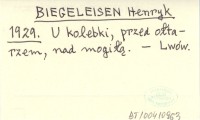 BIEGELEISEN Henryk
1929. U kolebki, przed ołta-
rzem, nad mogiłą. — Lwów.
BT/00410963